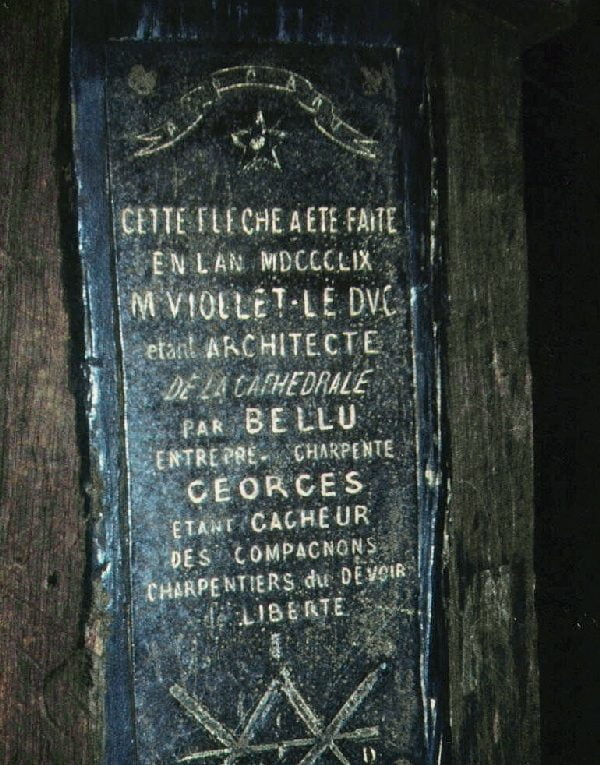 CETTE FLECHE A ETE FAITE
EN LAN MDCCCLIX
M VIOLLET-LE DVC
etant ARCHITECTE
DE LA CATHEDRALE
PAR BELLU
ENTREPRE. CHARPENTE
GEORGES
ETANT GACHEUR
DES COMPAGNONS
CHARPENTIERS du DEVOIR
LIBERTE